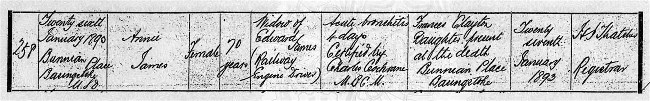 258
Twenty sixth
January 1893
Bunnian Place
Basingstoke
U.S.D.
Annie
James
Female
70
years
Widow of
Edward James
Railway
(Engine Driver)
Acute bronchitis
6 days
Certified by
Charles Cochrane
M.B.C.M.
Frances Clayton
Daughter present
at the death
Bunnian Place
Basingstoke
Twenty
seventh
January
1893
Registrar